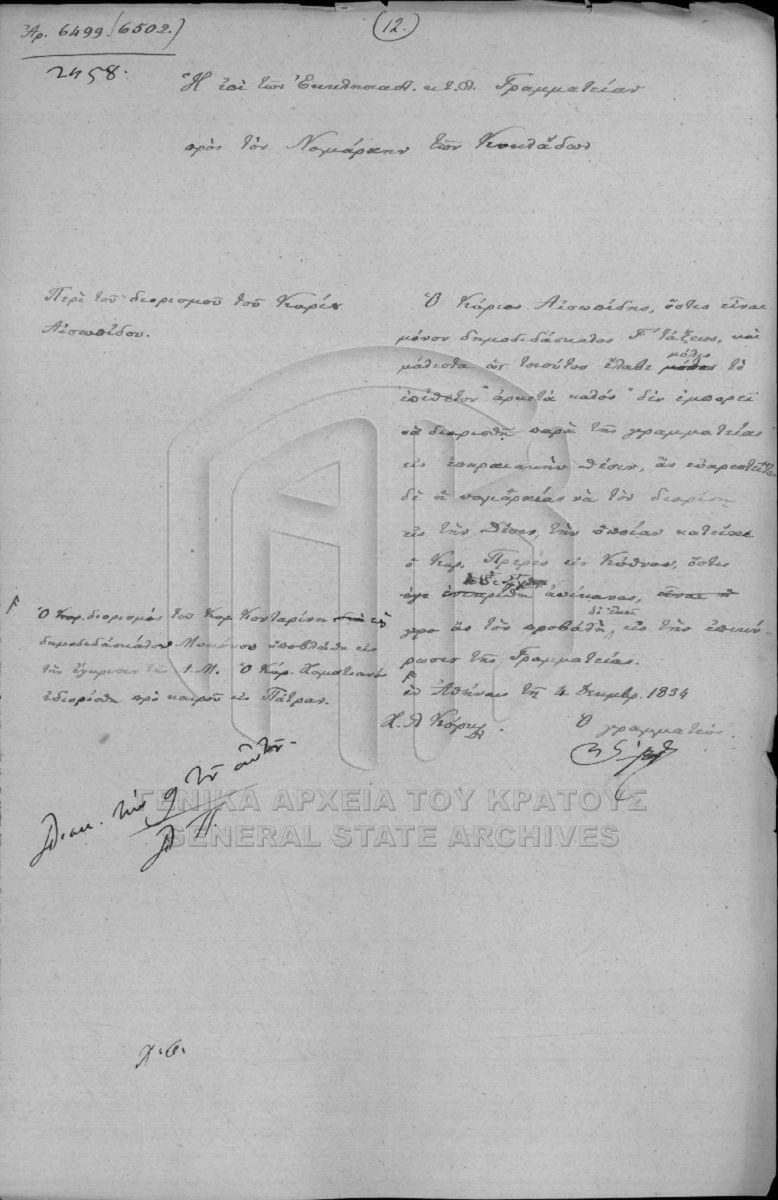 Ἀρ. 6499. (6502.)
12.
2458.
Ἡ ἐπὶ τῶν Ἐκκλησιαστ. κ.τ.λ. Γραμματεία
πρὸς τὸν Νομάρχην τῶν Κυκλάδων
Περὶ τοῦ διορισμοῦ τοῦ Κυρίου
Αἰσωπίδου.
Ὁ Κύριος Αἰσωπίδης, ὅστις εἶναι
μόνον δημοδιδάσκαλος Γ΄ τάξεως, καὶ
μάλιστα ὡς τοιοῦτος ἔλαβε μόλις τὸ
ἐπίθετον "ἀρκετὰ καλὸς" δὲν ἐμπορεῖ
νὰ διορισθῇ παρὰ τῆς γραμματείας
εἰς ἐπαρχιακὴν θέσιν, ἂς
δὲ ἡ νομαρχία νὰ τὸν διορίσῃ
εἰς τὴν θέσιν, τὴν ὁποίαν κατεῖχε
ὁ Κύρ. εἰς Κύθνον, ὅστις
ἂς τὸν προβάλῃ εἰς τὴν ἐπικύ-
ρωσιν τῆς Γραμματείας.
Ἐν Ἀθήναις τῇ 4 Δεκεμβρ. 1834
Ὁ γραμματεύς.
Ὁ διορισμὸς τοῦ Κυρ. Κονταρίνη
δημοδιδασκάλου Μυκόνου ὑπεβλήθη εἰς
τὴν ἔγκρισιν τῆς Α. Μ. Ὁ Κύρ. Χωματιανὸς
ἐδιορίσθη πρὸ καιροῦ εἰς Πάτραν.
τὴν 9 τοῦ αὐτοῦ.
ΓΕΝΙΚΑ ΑΡΧΕΙΑ ΤΟΥ ΚΡΑΤΟΥΣ
GENERAL STATE ARCHIVES